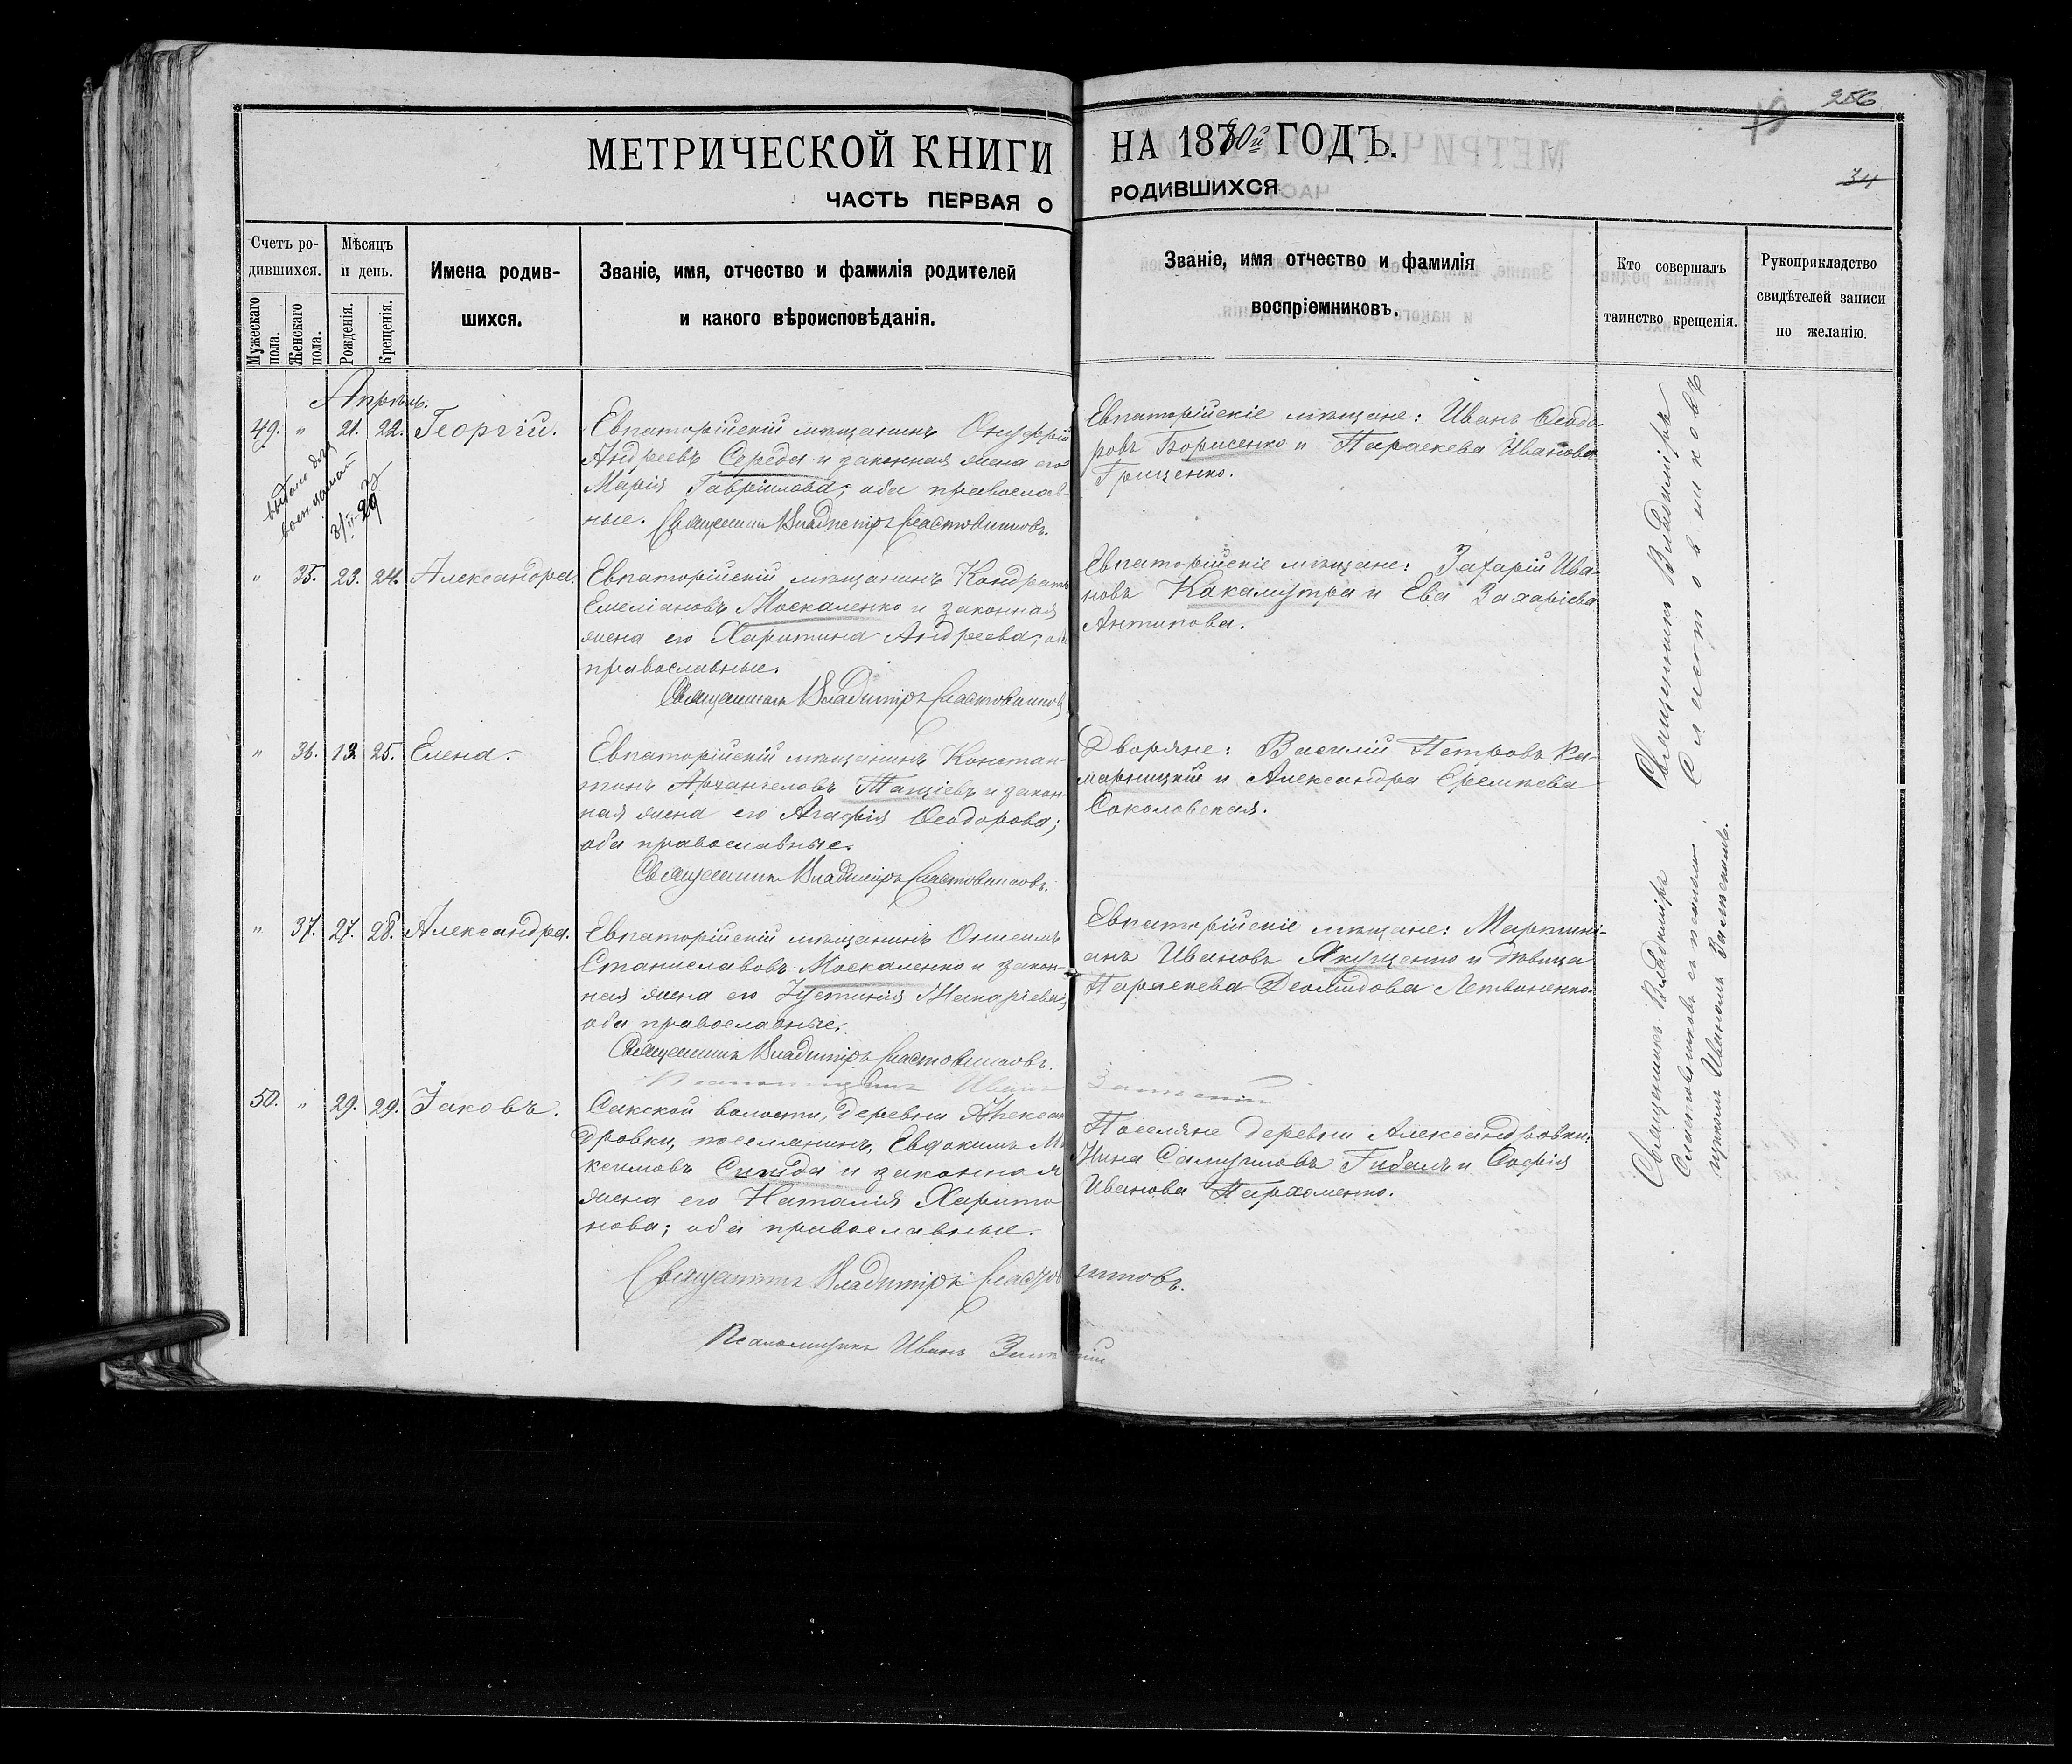 256
34
МЕТРИЧЕСКОЙ КНИГИ НА 1880й ГОДЪ.
ЧАСТЬ ПЕРВАЯ О РОДИВШИХСЯ
Счетъ ро-
дившихся.
Мужескаго
пола.
Женскаго
пола.
Мѣсяцъ
и день.
Рожденія.
Крещенія.
Имена родив-
шихся.
Званіе, имя, отчество и фамилія родителей
и какого вѣроисповѣданія.
Званіе, имя отчество и фамилія
воспріемниковъ.
Кто совершалъ
таинство крещенія.
Рукоприкладство
свидѣтелей записи
по желанію.
Апрѣль.
49. " 21. 22. Георгій.
Евпаторійскій мѣщанинъ Онуфрій
Андреевъ Середа и законная жена его
Марія Гавріилова; оба православ-
ные. Священникъ Владиміръ Сластовниковъ.
Евпаторійскіе мѣщане: Иванъ Ѳеодо-
ровъ Борисенко и Параскева Иванова
Грищенко.
" 35. 23. 24. Александра.
Евпаторійскій мѣщанинъ Кондратъ
Емеліановъ Москаленко и законная
жена его Харитина Андреева; оба
православные.
Священникъ Владиміръ Сластовниковъ
Евпаторійскіе мѣщане: Захарій Ива-
новъ Какамутра и Ева Захаріева
Антипова.
" 36. 13. 25. Елена.
Евпаторійскій мѣщанинъ Констан-
тинъ Архангеловъ и закон-
ная жена его Агафія Ѳеодорова;
оба православные.
Священникъ Владиміръ Сластовниковъ.
Дворяне: Василій Петровъ Ка-
марницкій и Александра
Соколовская.
" 37. 27. 28. Александра.
Евпаторійскій мѣщанинъ Онисимъ
Станиславовъ Москаленко и закон-
ная жена его Іустинія Макаріева;
оба православные.
Священникъ Владиміръ Сластовниковъ.
Евпаторійскіе мѣщане: Мартини-
анъ Ивановъ Якущенко и дѣвица
Параскева Діомидова Летвиненко.
50. " 29. 29. Іаковъ.
Сакской волости, деревни Алексан
дровки, поселянинъ, Евдокимъ Ма
ксимовъ и законная
жена его Наталія Харито
нова; оба православные.
Поселяне деревни Александровки:
Самуиловъ Гибалъ и Софія
Иванова Пархоменко.
Священникъ Владиміръ Сластовниковъ.
Псаломщикъ Иванъ
Священникъ Владиміръ
Сластовниковъ
Священникъ Владиміръ
Сластовниковъ съ псалом
щикомъ Иваномъ